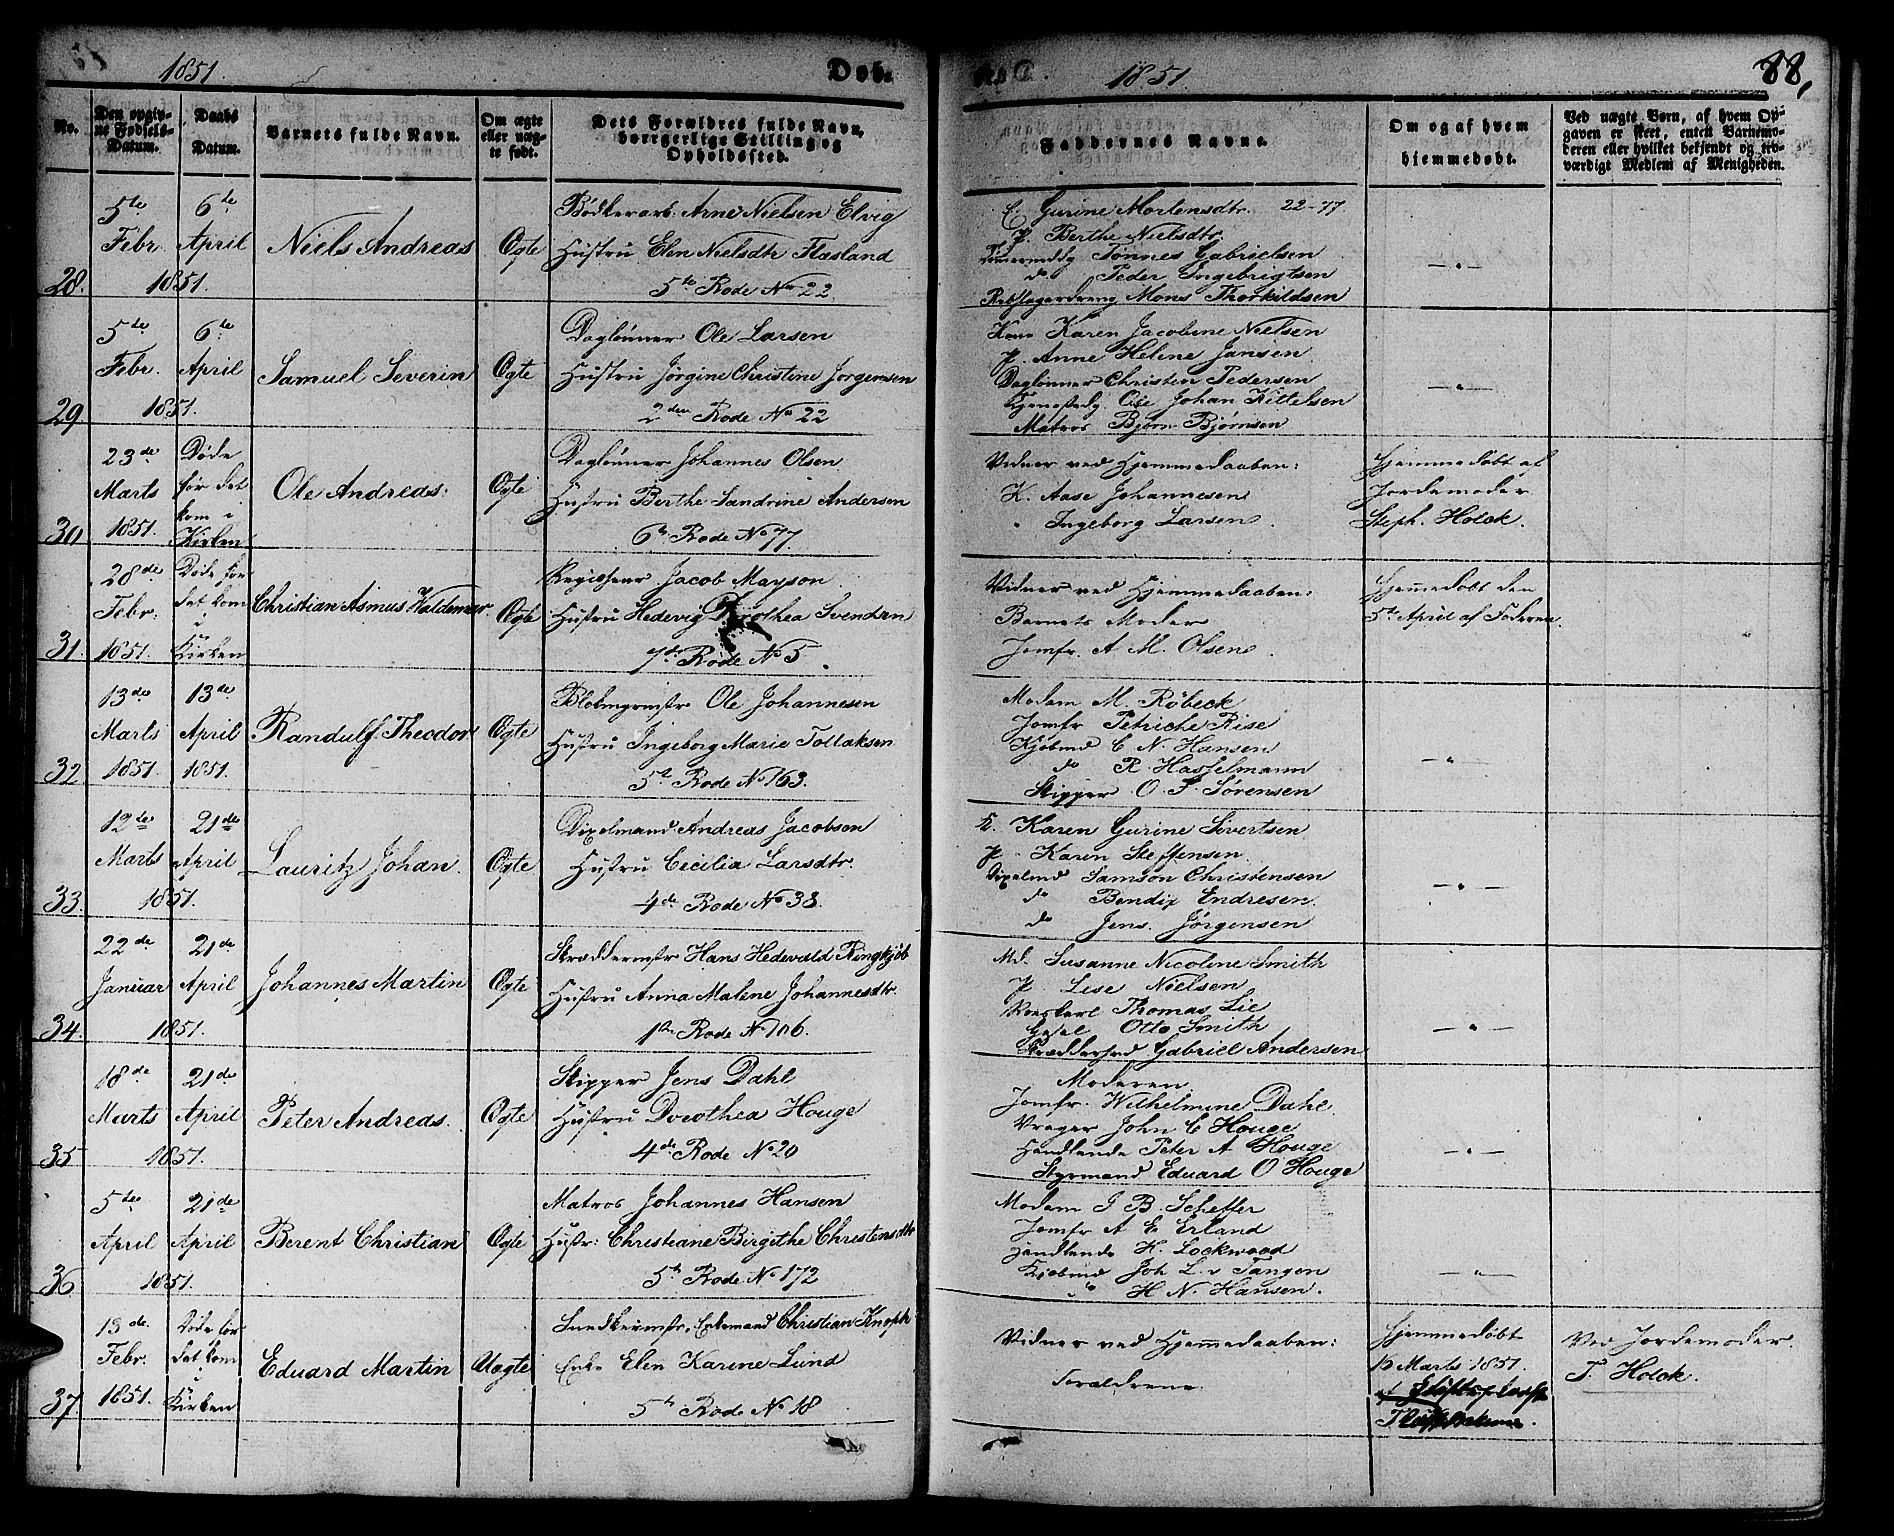 1851.
Døb.
No.
Den opgivne Fødsels-Datum.
Daabs Datum.
Barnets fulde Navn.
Om ægte eller uægte født.
Dets Forældres fulde Navn, borgerlige Stilling og Opholdssted.
28.
5te Febr.
6te April
1851.
Niels Andreas
Ægte
Bødkerarb: Arne Nielsen Elvig
Hustru Elen Nielsdtr Flæsland
5te Rode No 22
29
5te Febr.
6te April
1851.
Samuel Severin
Ægte
Daglønner Ole Larsen
Hustru Jörgine Christine Jorgensen
2den Rode No 22
30
23de Marts 1851.
Døde før det kom i Kirken
Ole Andreas:
Ægte
Daglönner Johannes Olsen
Hustru Berthe Sandrine Andersen
6te Rode No 77.
31.
28de Febr. 1851.
Døde før det kom i Kirken
Christian Asmus Valdemar
Ægte
Regisseur Jacob Mayson
Hustru Hedevig Dorothea Svendsen
7de Rode No 5.
32.
13de Marts 1851.
13de April 1851.
Randulf Theodor
Ægte
Blokmgrmstr Ole Johannesen
Hustru Ingeborg Marie Tollaksen
5te Rode No 163.
33.
12te Marts
21de April
1851.
Lauritz Johan.
Ægte
Dixelmand Andreas Jacobsen
Hustru Cecilia Larsdtr.
4de Rode No 38.
34.
22de Januar
21de April
1851.
Johannes Martin
Ægte
Skræddermstr Hans Hedevald Ringkjöb
Hustru Anna Malene Johannesdtr.
1ste Rode No 106.
35
18de Marts
21de April
1851.
Peter Andreas.
Ægte
Skipper Jens Dahl
Hustru Dorothea Houge
4de Rode No 20
36
5te April
21de April
1851.
Berent Christian
Ægte
Matros Johannes Hansen
Hustr: Christiane Birgithe Christensdtr
5te Rode No 172
37.
13de Febr. 1851.
Døde før det kom i Kirken
Eduard Martin
Uægte
Snedkermstr. Enkemand Christian Knoph
Enke Elen Karine Lund
5te Rode No 18
1851.
88,
Faddernes Navne.
Om og af hvem hjemmedøbt.
Ved uægte Børn, af hvem Opgaven er skeet, enten Barnemoderen eller hvilket bekjendt og troværdigt Medlem af Menigheden.
Gurine Mortensdtr. 22-77
P. Berthe Nielsdtr.
Tønnes Gabrielsen
do Peder Ingebrigtsen
Rebslagerdreng Mons Thorkildsen
Kone Karen Jacobine Nielsen
P. Anne Helene Jansen
Daglønner Christen Pedersen
Ole Johan Kittelsen
Matros Bjørn Bjørnsen
Vidner ved Hjemmedaaben:
K. Aase Johannesen
" Ingeborg Larsen.
Hjemmedøbt af
Jordemoder
Steph. Holck.
Vidner ved Hjemmedaaben:
Barnets Moder
Jomfr. A M. Olsen.
Hjemmedøbt den
5te April af Faderen.
Madam M. Røbeck
Jomfr Petriche Rise
Kjøbmd C N. Hansen
do R. Hasselmann
Skipper O. S. Sörensen
K. Karen Gurine Sivertsen
P. Karen Steffensen
Dixelmd Samson Christensen
do Bendix Endresen.
do Jens Jørgensen
Md. Susanne Nicoline Smith
P Lise Nielsen
Thomas Lie
Otto Smith
Skrædersvd Gabriel Andersen
Moderen
Jomfr. Wilhelmine Dahl.
Vrager John C Houge
Handlende Peter A Houge
Styrmand Eduard O Houge
Madam J B. Scheffer
Jomfr A E Erland
Handlende H. Lockwood
Kjøbmd Joh L. v Tangen
do H N. Hansen.
Vidner ved Hjemmedaaben:
Forældrene
Hjemmedøbt
Marts 1851.
Ved Jordemoder
T. Holck.